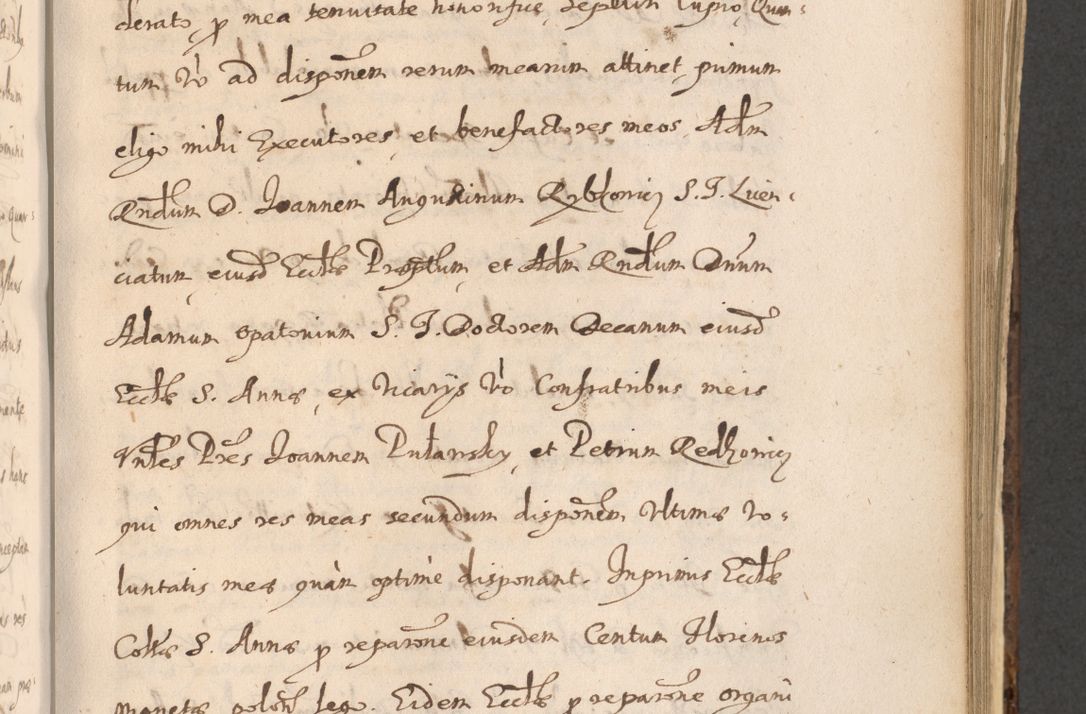 derato, p mea tenuitate honorifice, sepeliri cupio, Quan-
tum v̀o ad disponẽm rerum mearum attinet, primum
eligo mihi Executores, et benefactores meos, Adm̃
Rndũm D. Joannem Augustinum S. T. Licen-
ciatum, eiusd̃ Eccl̃æ Præp̃tum, et Adm̃ Rndũm Dnũm
Adamum Opatovium S. T. Doctorem Decanum eiusd̃
Eccl̃æ S. Annæ, ex Vicarijs v̀o Confratribus meis
Vnl̃es Pr̃es Joannem Pułarsky, et Petrum
qui omnes res meas secundum disponẽm Vltimæ Vo-
luntatis meæ quàm optimè disponant. Inprimis Eccl̃æ
Coll̃æ S. Annæ p reparõne eiusdem Centum Florenos
monetæ polon̄ lego. Eidem Eccl̃æ p reparõne organi